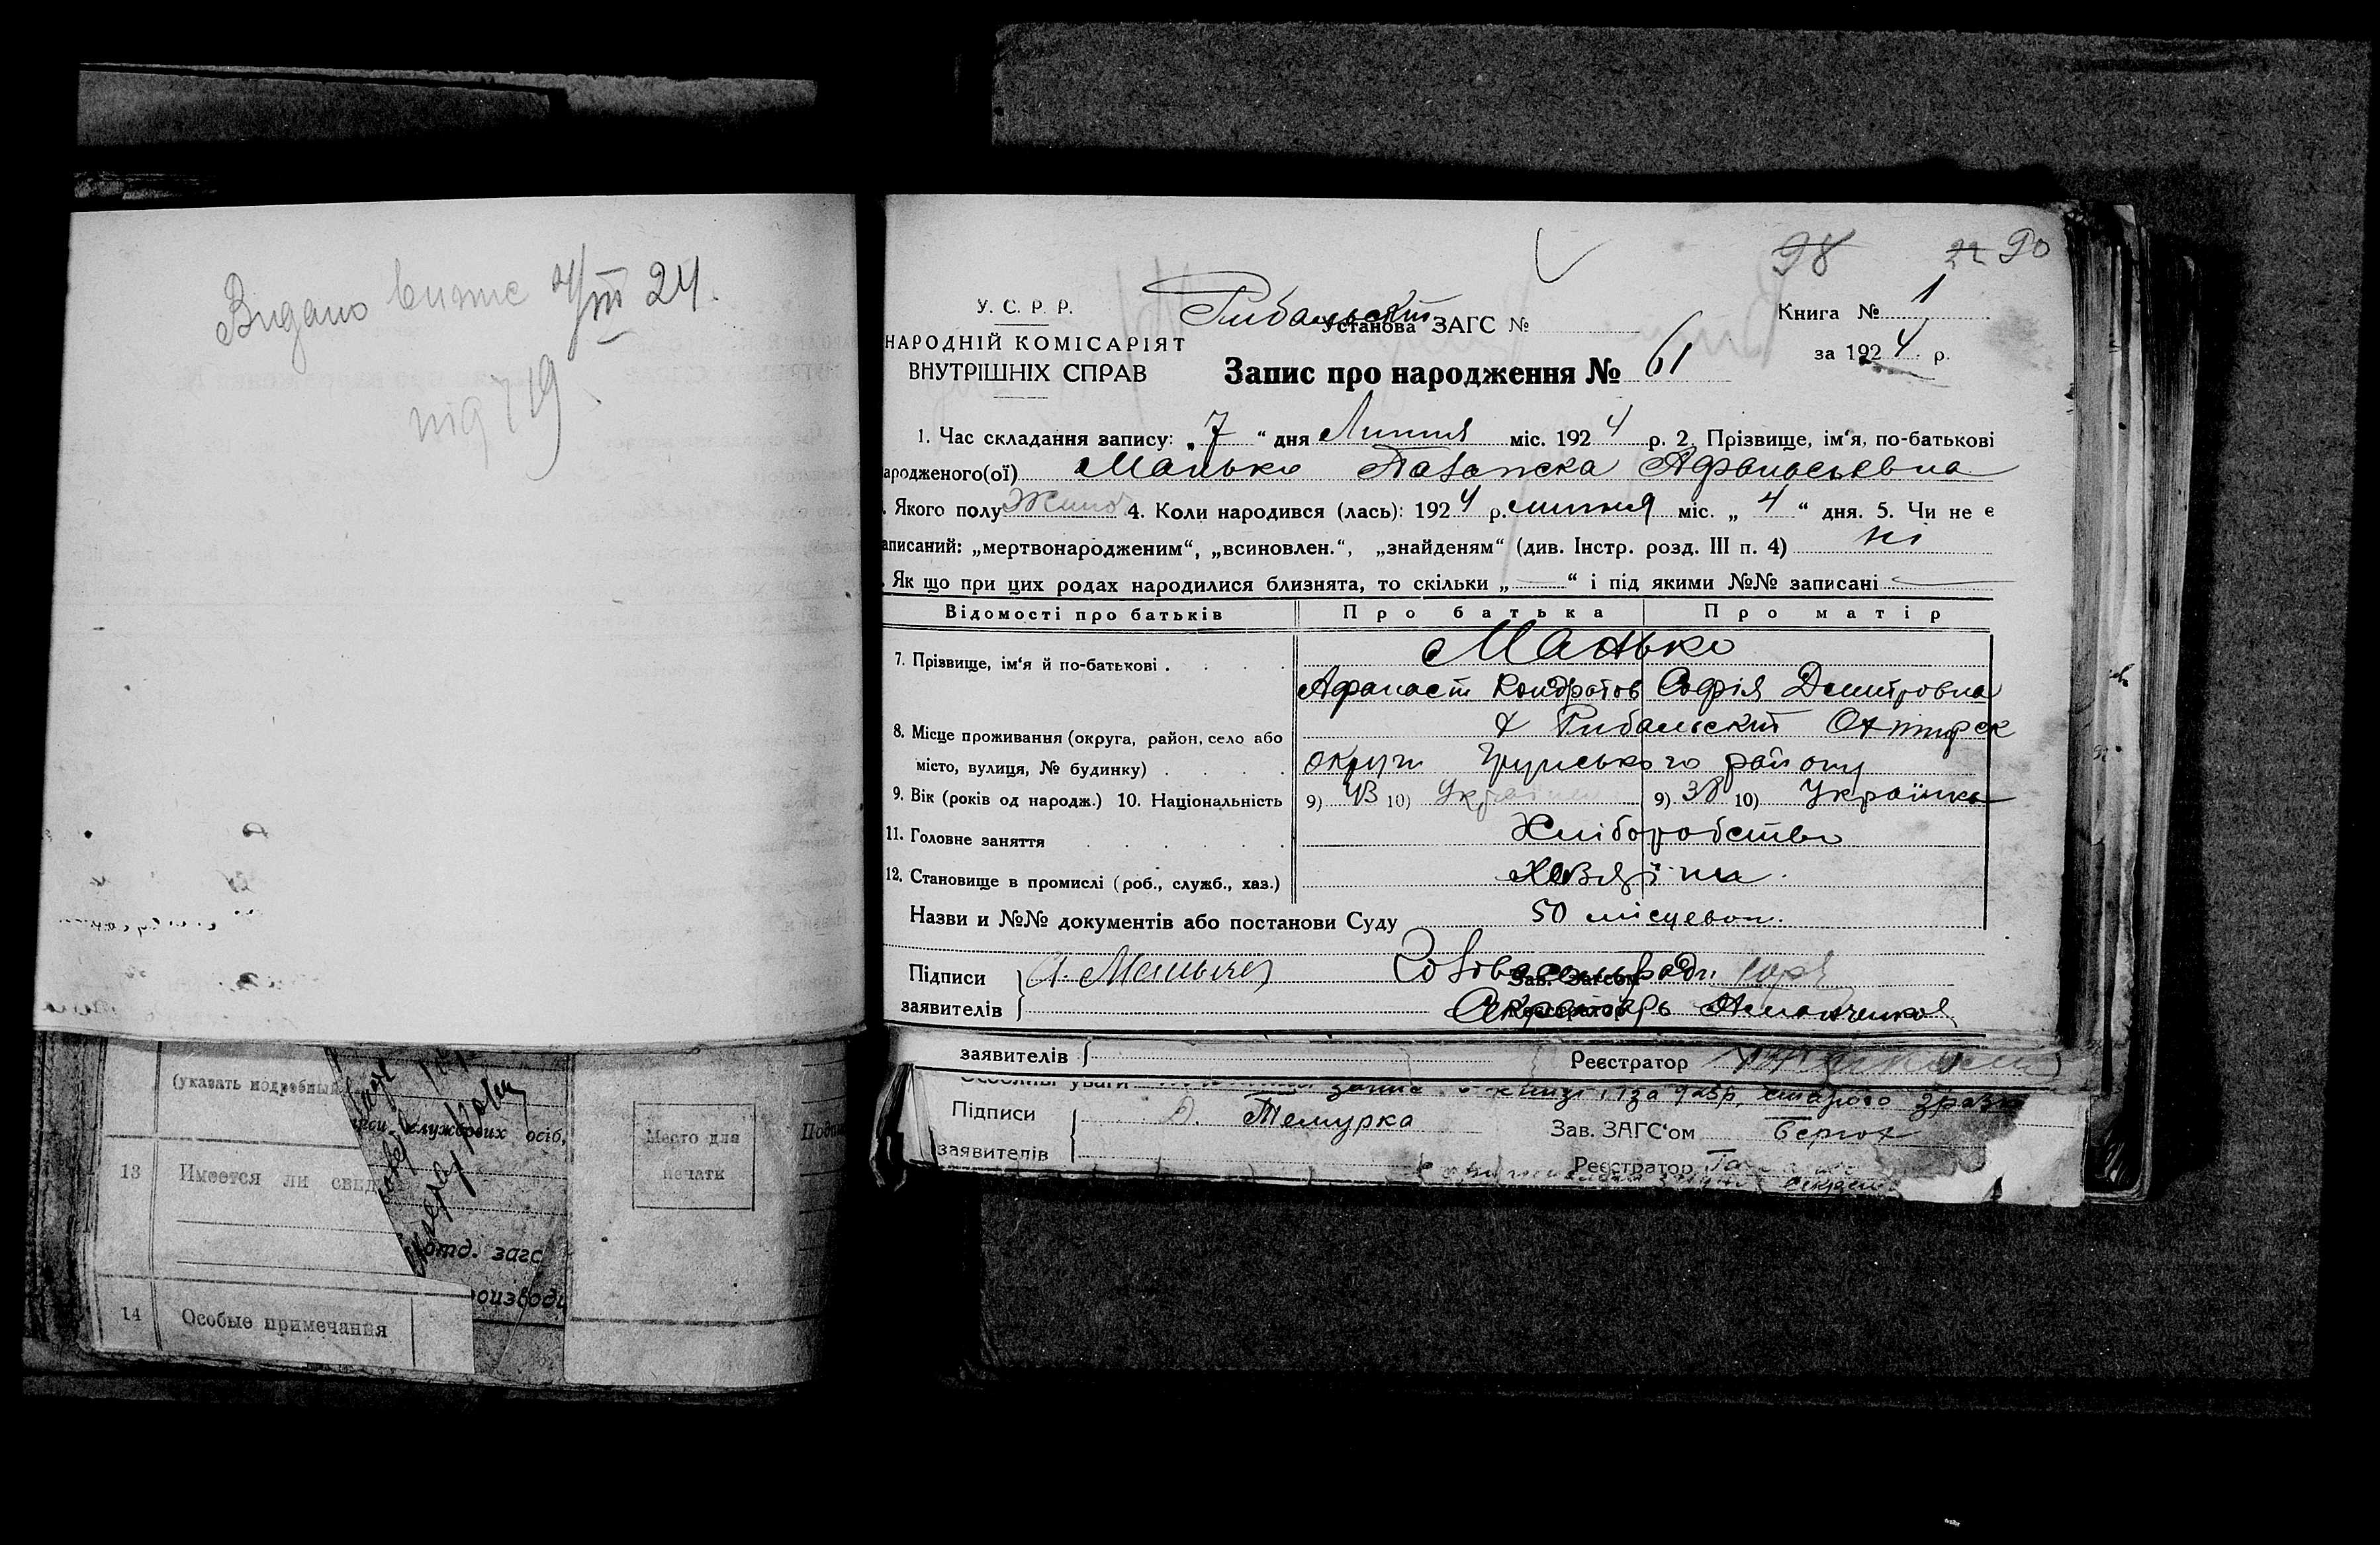 Видано випис 4/VII 24.
під 719
98 22 90
У. С. Р. Р.
НАРОДНІЙ КОМІСАРІЯТ
ВНУТРІШНІХ СПРАВ
Рибальский Установа ЗАГС №
Запис про народження № 61
Книга № 1
за 1924 р.
1. Час складання запису: „7“ дня Липня міс. 1924 р. 2. Прізвище, ім‘я, по-батькові
ародженого(ої) Манько Параска Афанасьевна
. Якого полу Жіноч 4. Коли народився (лась): 1924 р. липня міс. „4“ дня. 5. Чи не є
аписаний: „мертвонародженим“, „всиновлен.“, „знайденям“ (див. Інстр. розд. III п. 4) ні
. Як що при цих родах народилися близнята, то скільки „—“ і під якими №№ записані —
Відомості про батьків Про батька Про матір
7. Прізвище, ім‘я й по-батькові . Манько
Афанасій Кондратов Софія Дмитровна
8. Місце проживання (округа, район, село або х Рибальский Охтирск
місто, вулиця, № будинку) . округи Грунського району
9. Вік (років од народж.) 10. Національність 9) 43 10) Українец 9) 38 10) Українка
11. Головне заняття Хліборобство
12. Становище в промислі (роб., служб., хаз.) Хазяїни
Назви и №№ документів або постанови Суду 50 місцевої
Підписи А. Зав. Загсом
заявителів Реєстратор Секретарь
заявителів Реєстратор
Особливі уваги
Підписи
заявителів
Зав. ЗАГС‘ом
Реєстратор
(указать подробный
службових осіб,
13 Имеется ли свид
отд. загс
14 Особые примечания
Место для
печати